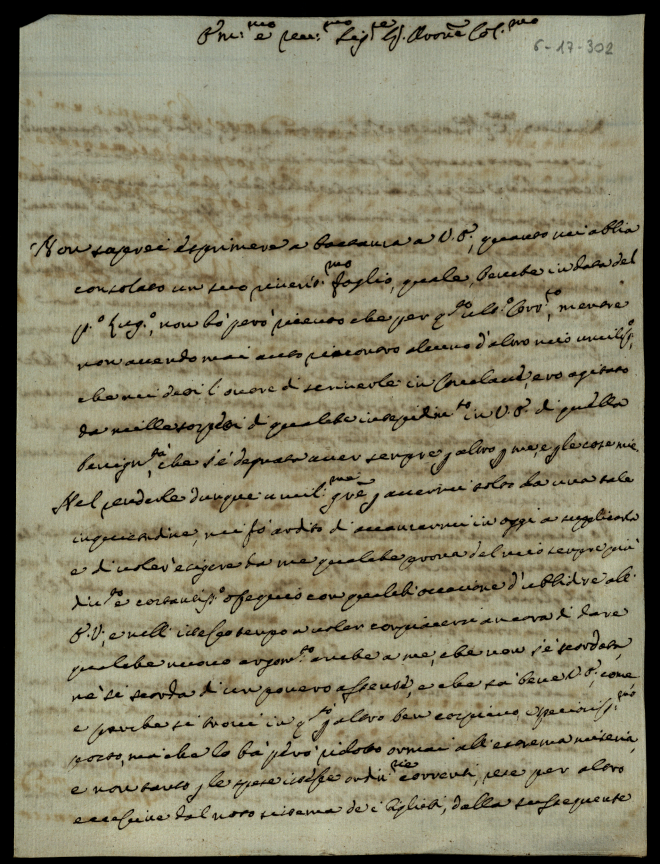 Ill.mo e Rev.mo Sig.re Sig. Pron.e Col.mo
6-17-302
Non saprei esprimere a bastanza a V.S., quanto mi abbia
consolato un suo riverit.mo foglio, quale, benche in data del
p.o Lug.o, non hò però ricevuto che per q.sto ult.o Corr.to, mentre
non avendo mai avuto riscontro alcuno d'altro mio umiliss.o
che mi diedi l'onore di scriverle in ero agitato
da mille sospetti di qualche intepidim.to in V.S. di quella
benign.tà, che s'è degnata aver sempre p altro p me e p le cose mie.
Nel renderle dunque umil.me gr.e p avermi tolto da una tale
inquietudine, mi fò ardito di avanzarmi in oggi a supplicarla
e di voler esigere da me qualche prova del mio sempre più
div.to e costantiss.o ossequio con qualch'occasione d'ubbidire all
S.V., e nell'istesso tempo a voler compiacersi ancora di dare
qualche nuovo argom.to anche a me, che non s'è scordata,
nè si scorda di un povero assente, e che sa bene V.S., come
e perche si trovi in q.sto p altro ben cospicuo, e speciosiss.mo
posto, ma che lo hà però ridotto ormai all'estrema miseria,
e non tanto p le spese istesse ordin.rie correnti, rese per altro
eccessive dal noto sistema de i Biglietti, dalla susseguente